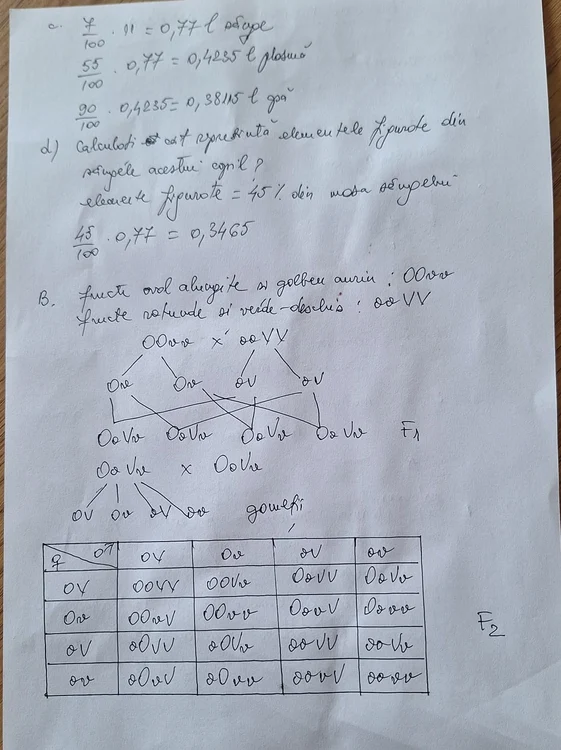 c. 7/100 · 11 = 0,77 l sânge
55/100 · 0,77 = 0,4235 l plasmă
90/100 · 0,4235 = 0,38115 l apă
d) Calculați cât reprezintă elementele figurate din
sângele acestui copil?
elemente figurate = 45% din masa sângelui
45/100 · 0,77 = 0,3465
B. fructe oval alungite si galben auriu : OOvv
fructe rotunde si verde-deschis : ooVV
OOvv x ooVV
Ov Ov oV oV
OoVv OoVv OoVv OoVv F1
OoVv x OoVv
OV Ov oV ov gameți
♀ ♂ OV Ov oV ov
OV OOVV OOVv OoVV OoVv
Ov OOvV OOvv OovV Oovv
oV oOVV oOVv ooVV ooVv
ov oOvV oOvv oovV oovv
F2